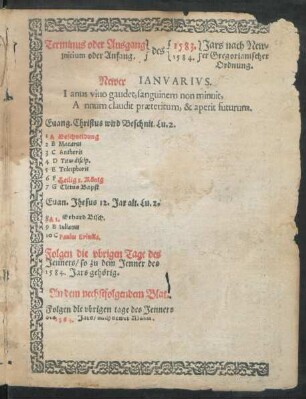 Terminus oder Ausgang des 1583. Jars nach New-
Initium oder Anfang. 1584. er Gregorianischer
Ordnung.
Newer IANVARIVS.
Ianus viuo gaudet, sanguinem non minuit,
Annum claudit præteritum, & aperit futurum.
Euang. Christus wird Beschnit. Lu. 2.
1 A Beschneidung
2 B Macarius
3 C Antheris
4 D Titus discip.
5 E Telesphorus
6 F Heilig 3. König
7 G
Euan. Jhesus 12. Jar alt. Lu. 2.
8 A 1. Erhard Bisch.
9 B Julianus
10 C Paulus
Folgen die vbrigen Tage des
Jenners/ so zu dem Jenner des
1584. Jars gehörig.
An dem nechstfolgendem Blat.
Folgen die vbrigen tage des Jenners
Jars/ nach newer